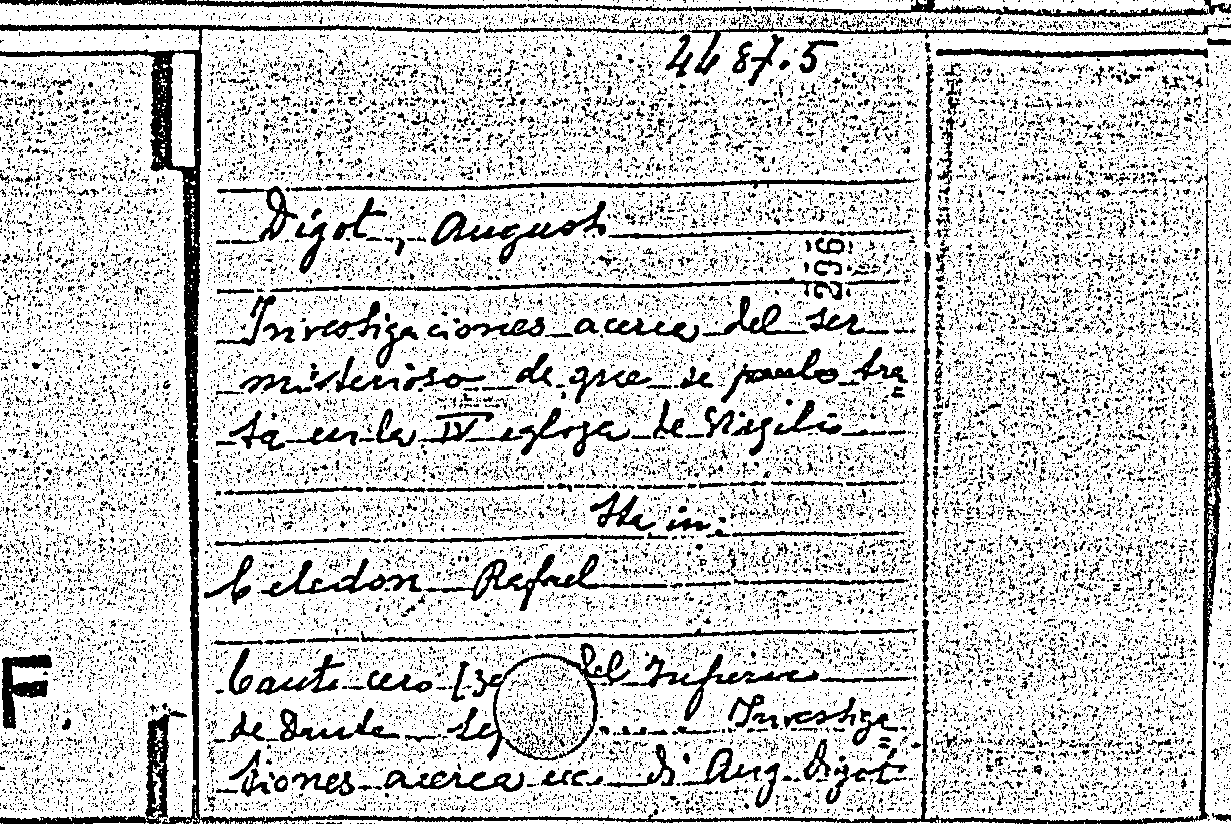 4487.5
Digot, August
296
Investigaciones acerca del ser
misterioso de que se tra=
ta en la IV egloga de Virgilio
Sta in:
Celedon Rafael
Canto cero [3 del Infierno
de Dante Investiga=
ciones acerca ecc. di Aug. Digot
F.